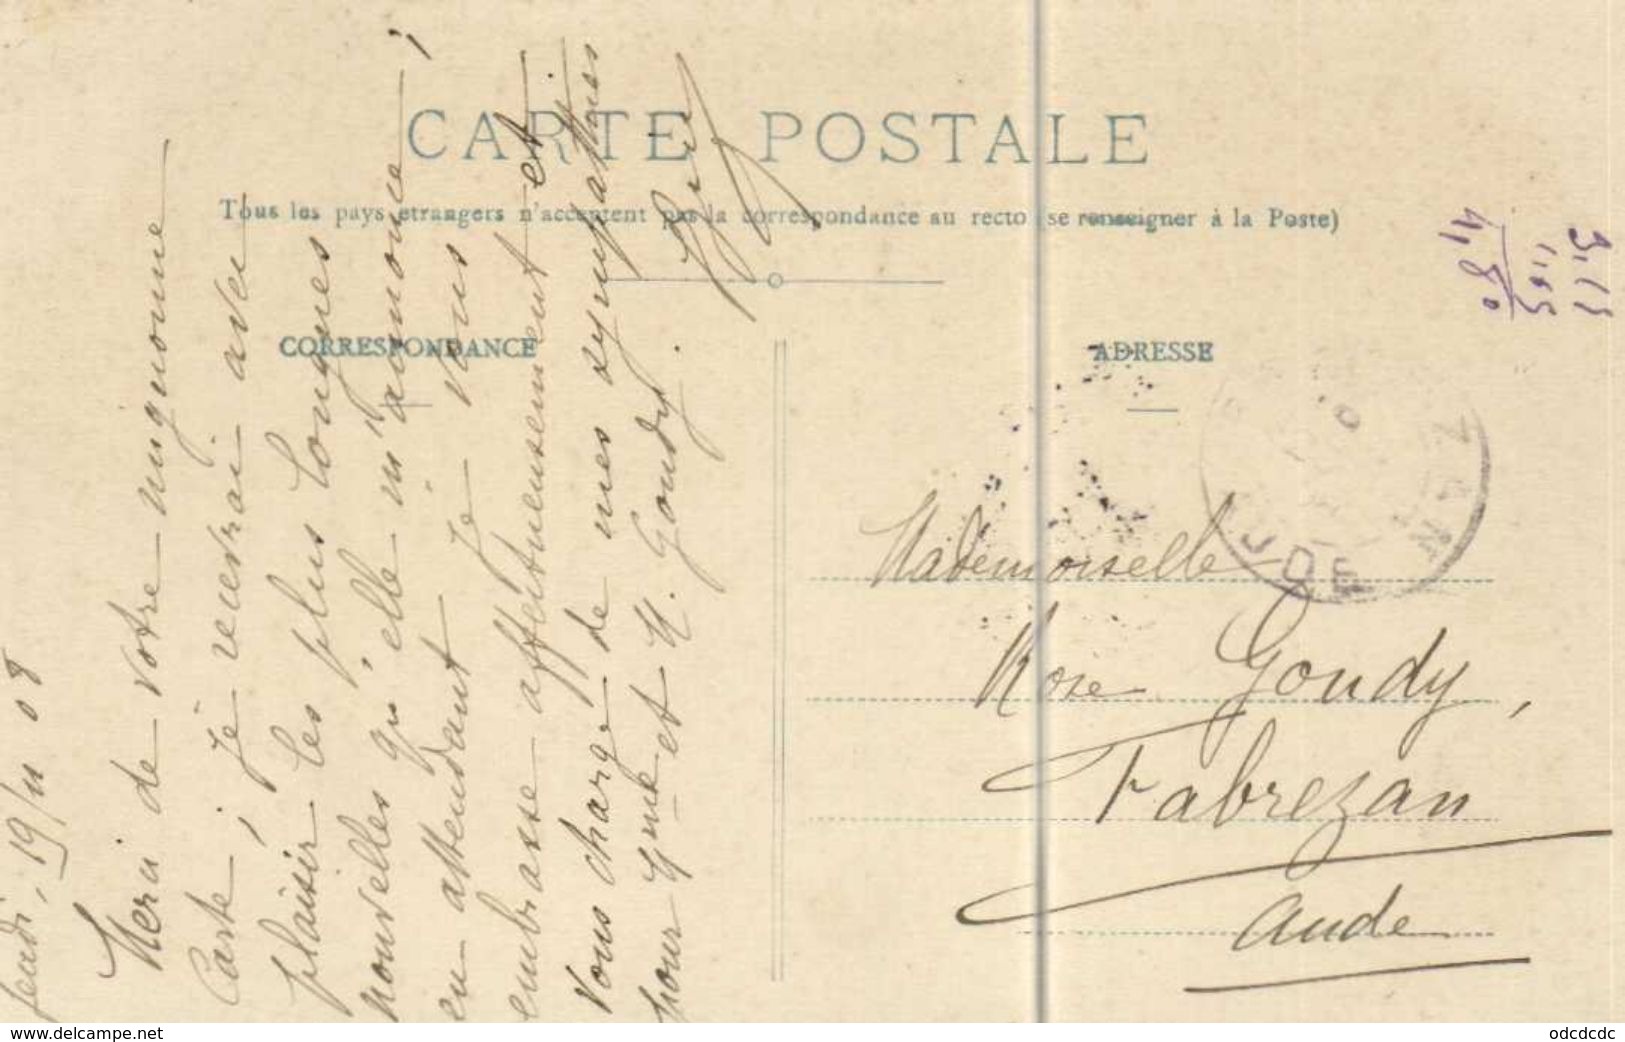 CARTE POSTALE
Tous les pays étrangers n'acceptent pas la correspondance au recto (se renseigner à la Poste)
CORRESPONDANCE
ADRESSE
jeudi, 19/11 08
Merci de votre mignonne
Carte ; je recevrai avec
plaisir les plus longues
nouvelles qu'elle m'annonce ;
en attendant je vous
embrasse affectueusement et
vous charge de mes sympathies
pour Mme et M. Goudy.
Mademoiselle
Rose Goudy,
Fabrezan
Aude
3,15
1,65
4,80
UDE
www.delcampe.net
odcdcdc